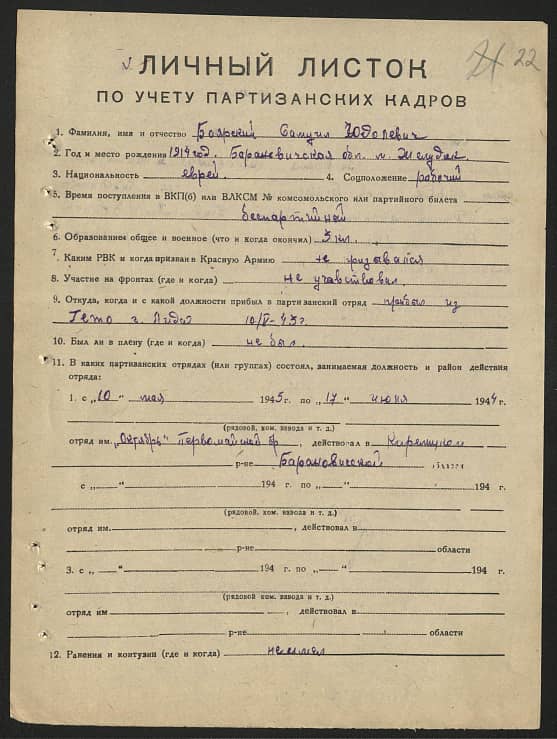 22
ЛИЧНЫЙ ЛИСТОК
ПО УЧЕТУ ПАРТИЗАНСКИХ КАДРОВ
1. Фамилия, имя и отчество Боярский Самуил Юделевич
2. Год и место рождения 1914 год. Барановичская обл. м. Желудок
3. Национальность еврей 4. Соцположение рабочий
5. Время поступления в ВКП(б) или ВЛКСМ № комсомольского или партийного билета
беспартийной
6. Образование общее и военное (что и когда окончил) 5 кл.
7. Каким РВК и когда призван в Красную Армию не призывайся
8. Участие на фронтах (где и когда) не учавствовал
9. Откуда, когда и с какой должности прибыл в партизанский отряд прибыл из
Гето г. Лида 10/V-43 г
10. Был ли в плену (где и когда) не был
11. В каких партизанских отрядах (или группах) состоял, занимаемая должность и район действия
отряда:
1. с „10" мая 1945 г. по „17" июня 1944 г.
(рядовой, ком. взвода и т. д.)
отряд им. „Октябрь" Первомайской бр, действовал в
р-не Барановиской
с „ " 194 г. по „ " 194 г.
(рядовой, ком. взвода и т. д.)
отряд им , действовал в
р-не области
3. с „ " 194 г. по „ " 194 г.
(рядовой, ком. взвода и т. д.)
отряд им , действовал в
р-не области
12. Ранения и контузии (где и когда) не имел